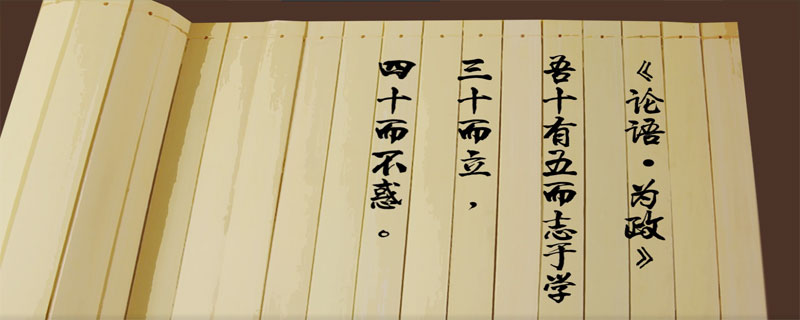 《论语·为政》
吾十有五而志于学
三十而立，
四十而不惑。